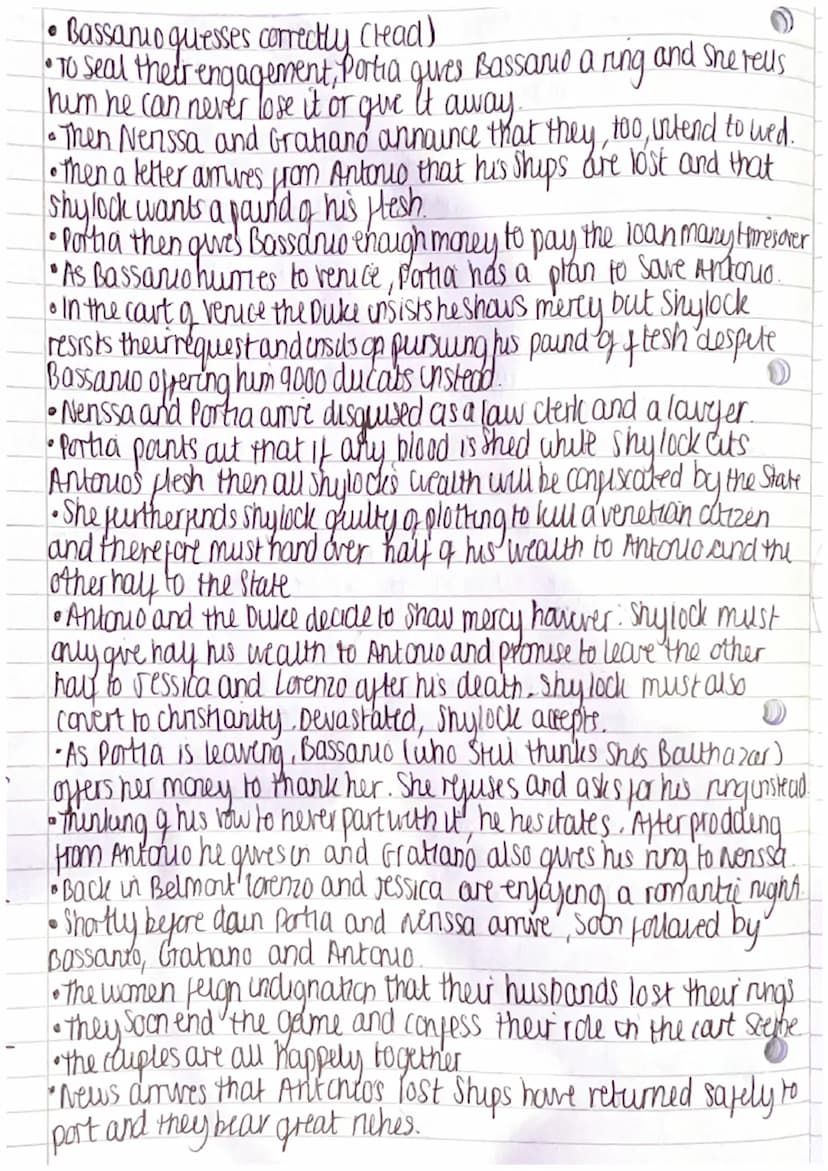 • Bassanio guesses correctly (lead)
• To seal their engagement, Portia gives Bassanio a ring and she tells
him he can never lose it or give it away.
• Then Nerissa and Gratiano announce that they, too, intend to wed.
• Then a letter arrives from Antonio that his ships are lost and that
Shylock wants a pound of his flesh.
• Portia then gives Bassanio enough money to pay the loan many times over
• As Bassanio hurries to Venice, Portia has a plan to save Antonio.
• In the court of Venice the Duke insists he shows mercy but Shylock
resists their request and insists on pursuing his pound of flesh despite
Bassanio offering him 9000 ducats instead.
• Nerissa and Portia arrive disguised as a law clerk and a lawyer.
• Portia points out that if any blood is shed while Shylock cuts
Antonio's flesh then all Shylock's wealth will be confiscated by the State
• She further finds Shylock guilty of plotting to kill a venetian citizen
and therefore must hand over half of his wealth to Antonio and the
other half to the State
• Antonio and the Duke decide to show mercy however: Shylock must
only give half his wealth to Antonio and promise to leave the other
half to Jessica and Lorenzo after his death. Shylock must also
covert to christianity. Devastated, Shylock accepts.
• As Portia is leaving, Bassanio (who still thinks shes Balthazar)
offers her money to thank her. She refuses and asks for his ring instead.
• Thinking of his vow to never part with it, he hesitates. After prodding
from Antonio he gives in and Gratiano also gives his ring to Nerissa.
• Back in Belmont Lorenzo and Jessica are enjoying a romantic night.
• Shortly before dawn Portia and Nerissa arrive, soon followed by
Bassanio, Gratiano and Antonio.
• The women feign indignation that their husbands lost their rings
• They soon end the game and confess their role in the court scene
• The couples are all happely together
• News arrives that Antonio's lost ships have returned safely to
port and they bear great riches.